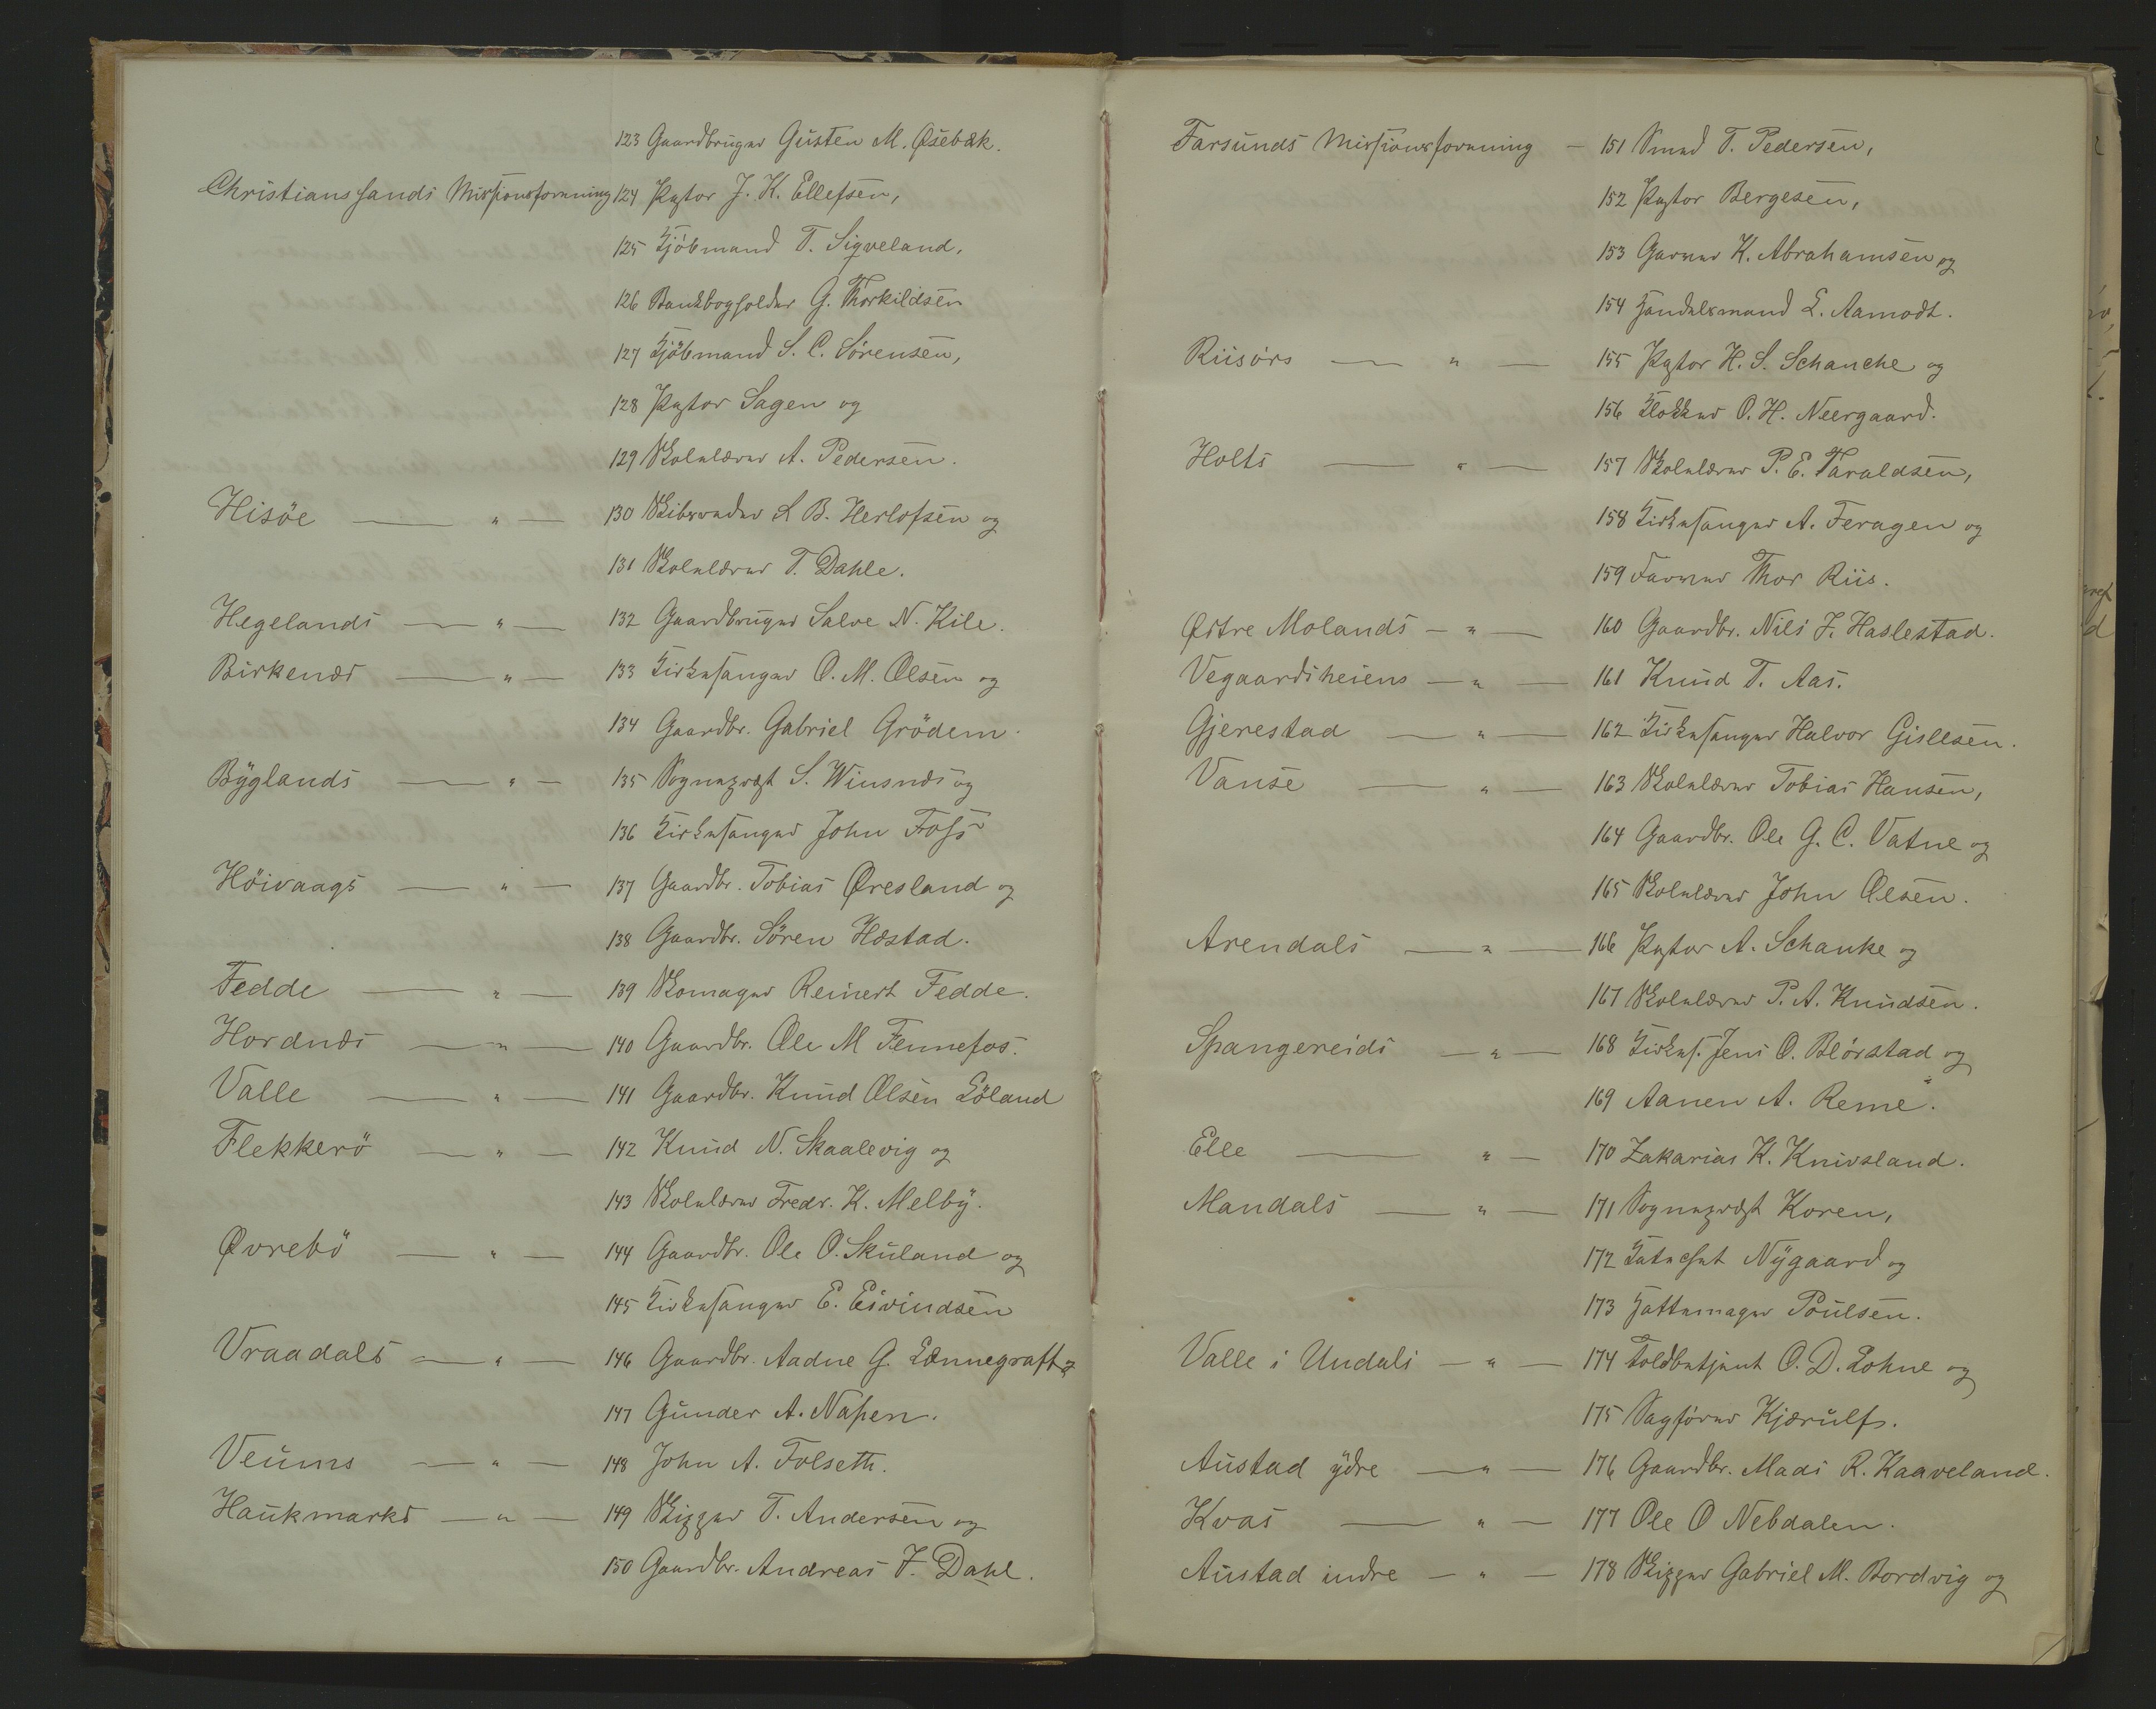 123 Gaardbruger Gusten M. Øsebæk.
Christianssands Missionsforening 124 Pastor J. K. Ellefsen,
125 Kjöbmand T. Sigveland,
126 Bankbogholder G. Thorkildsen
127 Kjöbmand S. C. Sörensen,
128 Pastor Sagen og
129 Skolelærer A. Pedersen.
Hisöe — " — 130 Skibsreder L B. Herlofsen og
131 Skolelærer T. Dahle.
Hegelands — " — 132 Gaardbruger Salve N. Kile.
Birkenæs — " — 133 Kirkesanger O. M. Olsen og
134 Gaardbr. Gabriel Grödem.
Byglands — " — 135 Sognepræst S. Winsnæs og
136 Kirkesanger John Foss
Höivaags — " — 137 Gaardbr. Tobias Øresland og
138 Gaardbr. Sören Hæstad.
Fedde — " — 139 Skomager Reinert Fedde.
Hordnæs — " — 140 Gaardbr. Ole M Fennefos.
Valle — " — 141 Gaardbr. Knud Olsen Löland
Flekkerö — " — 142 Knud N. Skaalevig og
143 Skolelærer Fredr. K. Melby.
Øvrebö — " — 144 Gaardbr. Ole O. Skuland og
145 Kirkesanger E. Eivindsen
Vraadals — " — 146 Gaardbr. Aadne G. Lønnegraft og
147 Gunder A. Napen.
Veums — " — 148 John A. Folseth.
Haukmarks — " — 149 Skipper T. Andersen og
150 Gaardbr. Andreas J. Dahl.
Farsunds Missionsforening — 151 Smed T. Pedersen,
152 Pastor Bergesen,
153 Garver K. Abrahamsen og
154 Handelsmand L. Aamodt.
Riisörs — " — 155 Pastor H. S. Schanche og
156 Klokker O. H. Neergaard.
Holts — " — 157 Skolelærer P. E. Taraldsen,
158 Kirkesanger A. Feragen og
159 Farver Thor Riis.
Østre Molands — " — 160 Gaardbr. Nils J. Haslestad.
Vegaardsheiens — " — 161 Knud T. Aas.
Gjerestad — " — 162 Kirkesanger Halvor Gislesen.
Vanse — " — 163 Skolelærer Tobias Hansen,
164 Gaardbr. Ole G. C. Vatne og
165 Skolelærer John Olsen.
Arendals — " — 166 Pastor A. Schanke og
167 Skolelærer P. A. Knudsen.
Spangereids — " — 168 Kirkes. Jens O. Blörstad og
169 Aanen A. Reme.
Elle — " — 170 Zakarias K. Knivsland.
Mandals — " — 171 Sognepræst Koren,
172 Kateket Nygaard og
173 Hattemager Poulsen.
Valle i Undals — " — 174 Toldbetjent O. D. Lohne og
175 Sagförer Kjærulf.
Austad ydre — " — 176 Gaardbr. Mads R. Kaaveland.
Kvas — " — 177 Ole O Nebdalen.
Austad indre — " — 178 Skipper Gabriel M. Bordvig og